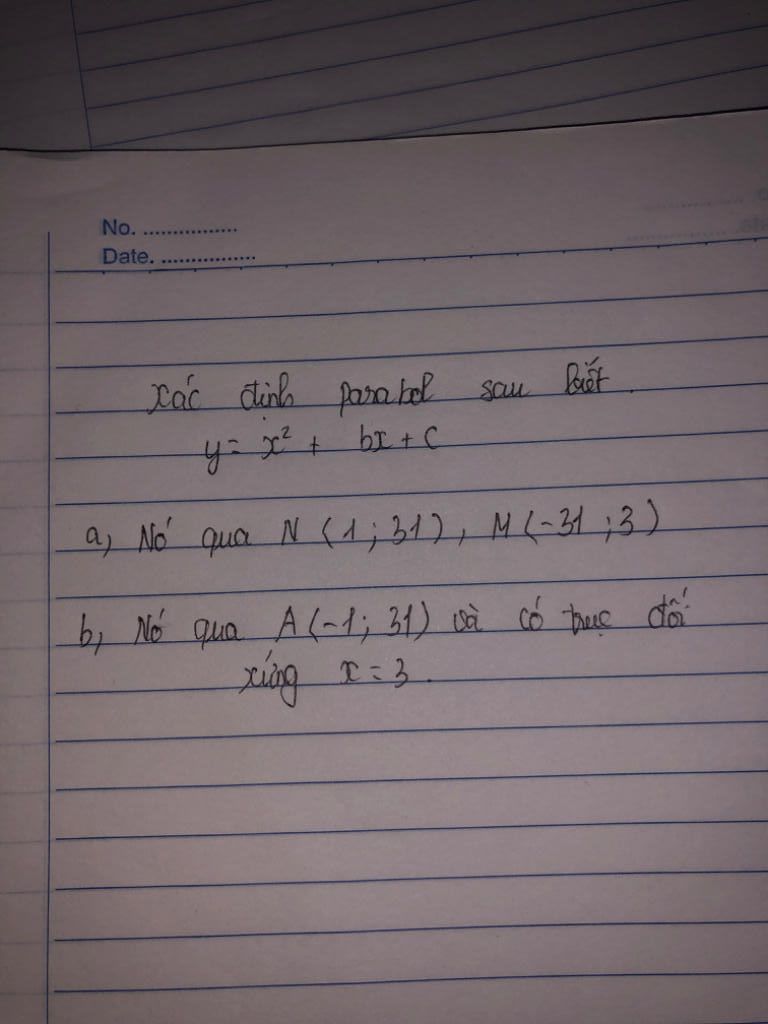 No. ................
Date. ................
Xác định parabol sau biết.
y = x² + bx + c
a, Nó qua N (1 ; 31) , M (-31 ; 3)
b, Nó qua A (-1 ; 31) và có trục đối
xứng x = 3.